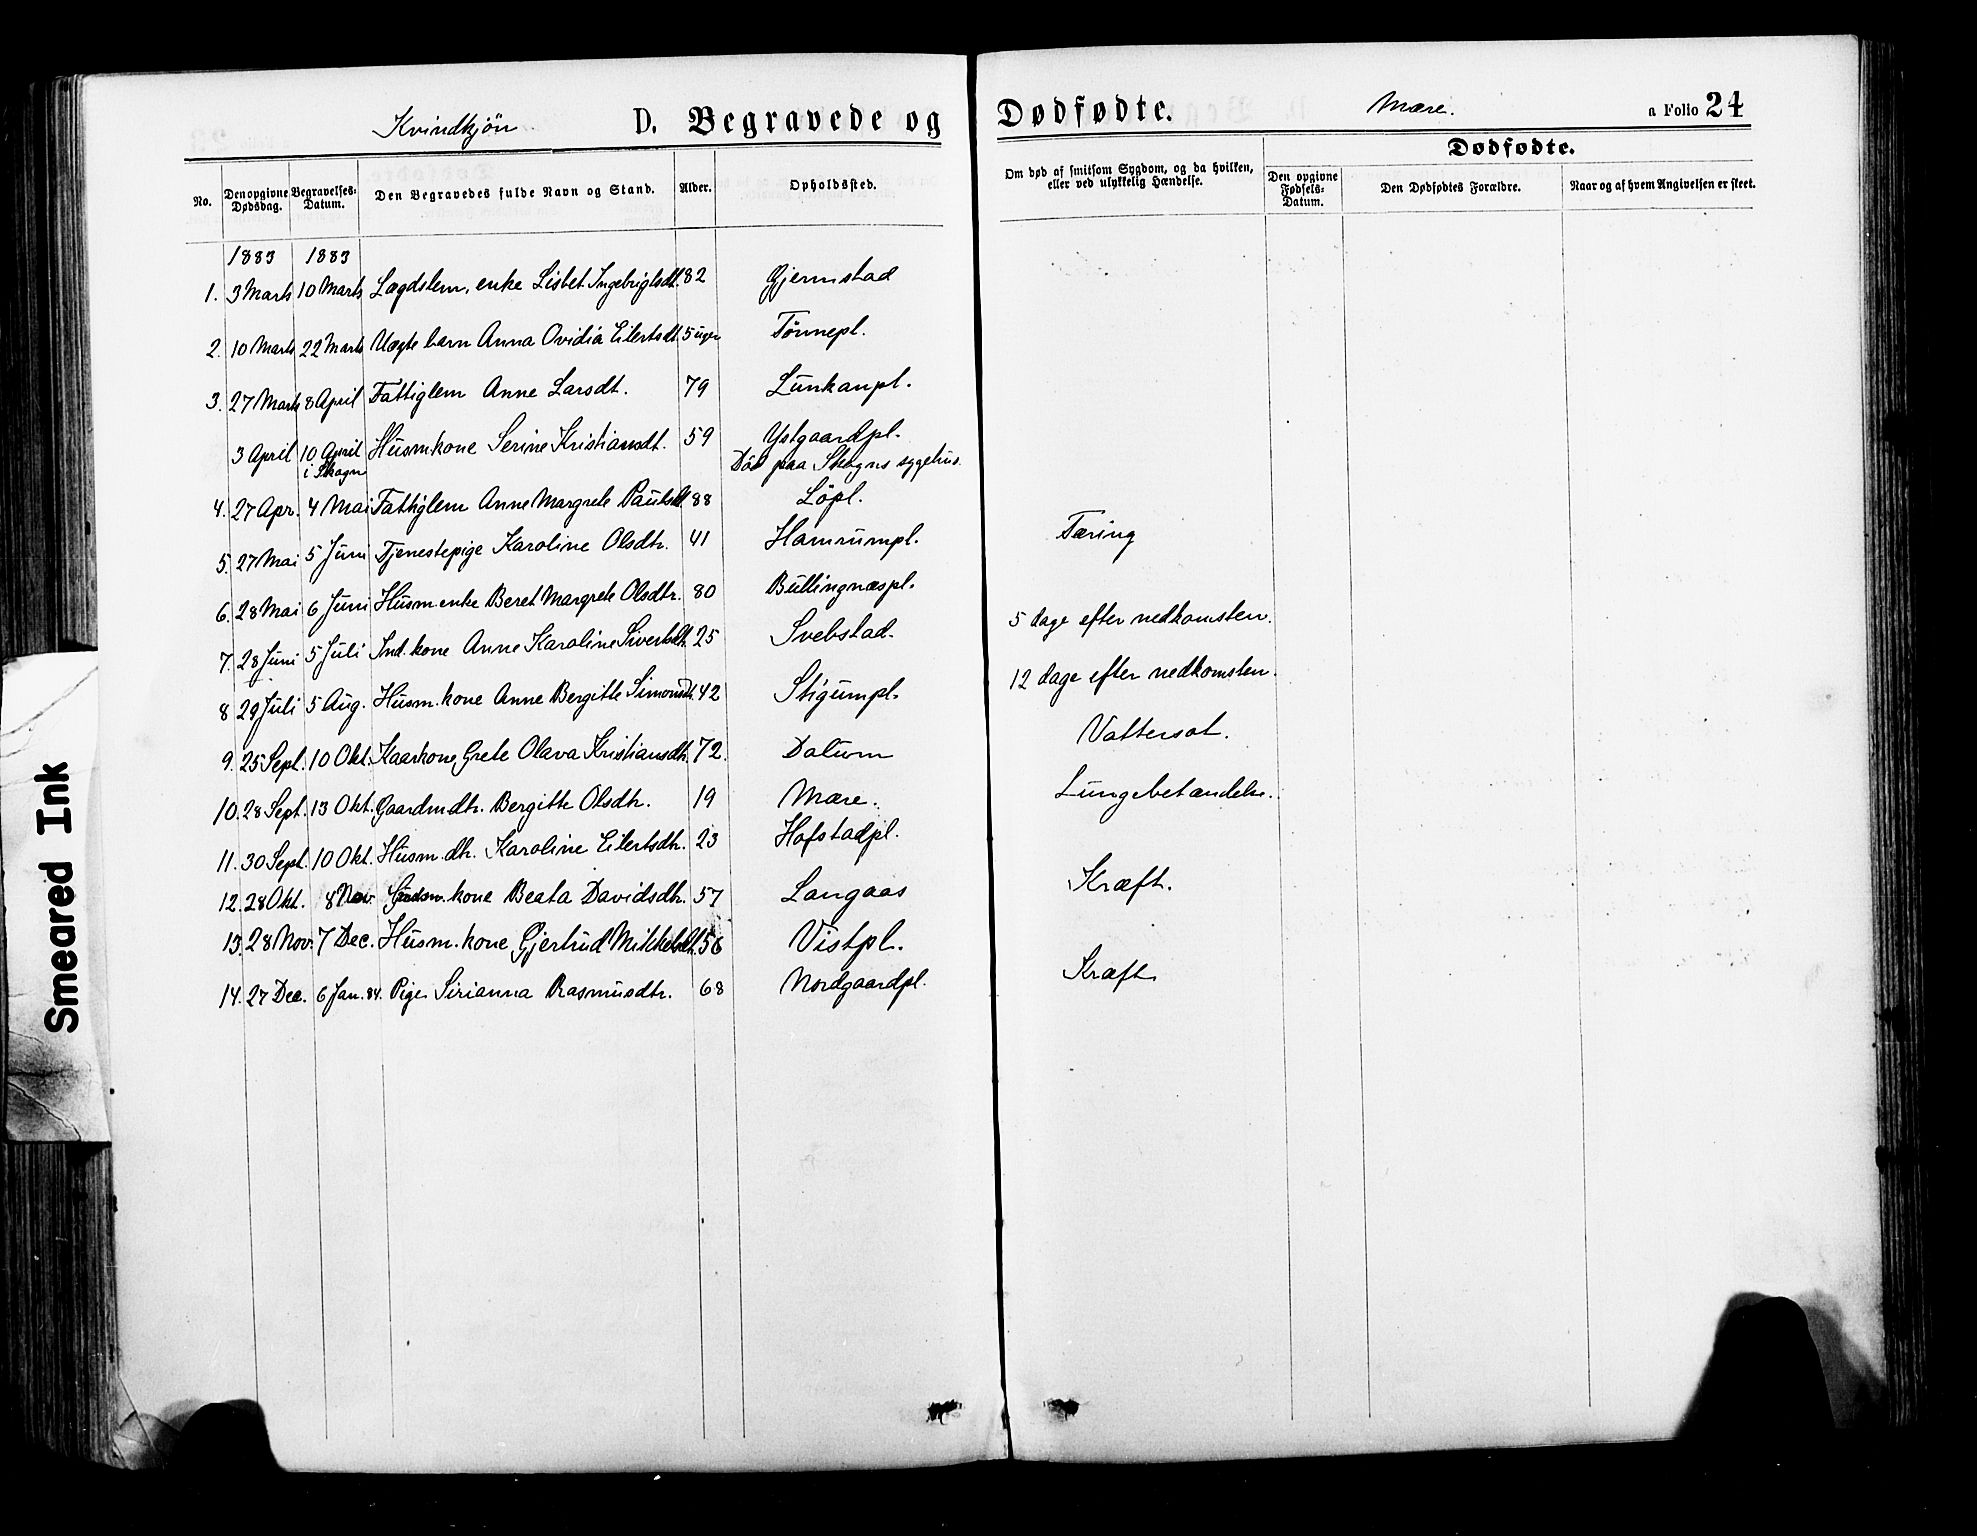 Kvindkjön D. Begravede og Dødfødte. Mære. a Folio 24
No. Den opgivne Dødsdag. Begravelses-Datum. Den Begravedes fulde Navn og Stand. Alder. Opholdssted. Om død af smitsom Sygdom, og da hvilken, eller ved ulykkelig Hændelse. Dødfødte.
Den opgivne Fødsels-Datum. Den Dødfødtes Forældre. Naar og af hvem Angivelsen er skeet.
1883 1883
1. 3 Marts 10 Marts Lægdslem, enke Lisbet Ingebrigtsdt. 82 Gjermstad
2. 10 Marts 22 Marts Uægte barn Anna Ovidia Eilertsdt. 5 uger Tönnepl.
3. 27 Marts 8 April Fattiglem Anne Larsdt. 79 Lunkanpl.
3 April 10 April Husmkone Serine Kristiansdt. 59 Ystgaardpl.
i Skogn Död paa Skogns sygehus.
4. 27 Apr. 4 Mai Fattiglem Anne Margrete Paulsdt. 88 Löpl.
5. 27 Mai 5 Juni Tjenestepige Karoline Olsdtr. 41 Hamrumpl. Tæring
6. 28 Mai 6 Juni Husm.enke Beret Margrete Olsdtr. 80 Bullingnæspl.
7. 28 Juni 5 Juli Ind.kone Anne Karoline Sivertsdt. 25 Svebstad. 5 dage efter nedkomsten.
8 29 Juli 5 Aug. Husm.kone Anne Bergitte Simonsdt. 42 Stigumpl. 12 dage efter nedkomsten.
9. 25 Sept. 10 Okt. Kaarkone Grete Olava Kristiansdtr. 72. Dalum Vattersot.
10. 28 Sept. 13 Okt. Gaardmdtr. Bergitte Olsdtr. 19 Mære. Lungebetændelse.
11. 30 Sept. 10 Okt. Husm.dtr. Karoline Eilertsdtr. 23 Hofstadpl.
12. 28 Okt. 8 Nov. kone Beata Davidsdtr. 57 Langaas Kræft.
13. 28 Nov. 7 Dec. Husm.kone Gjertrud Mikkelsdt. 56 Vistpl.
14. 27 Dec. 6 Jan. 84. Pige Sirianna Rasmusdtr. 68 Nordgaardpl. Kræft
Smeared Ink